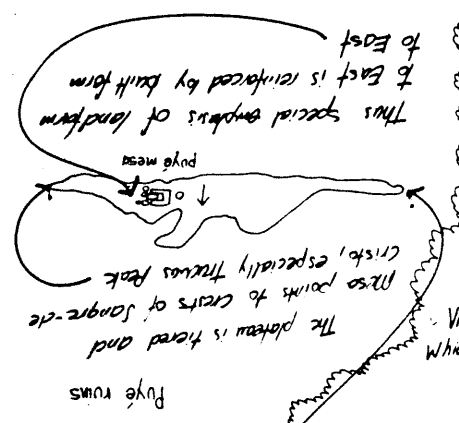 Puyé ruins
The plateau is tiered and
Mesa points to crests of Sangre-de
Cristo, especially Truchas Peak
Puyé mesa
Thus special emphasis of landform
to East is reinforced by built form
to East